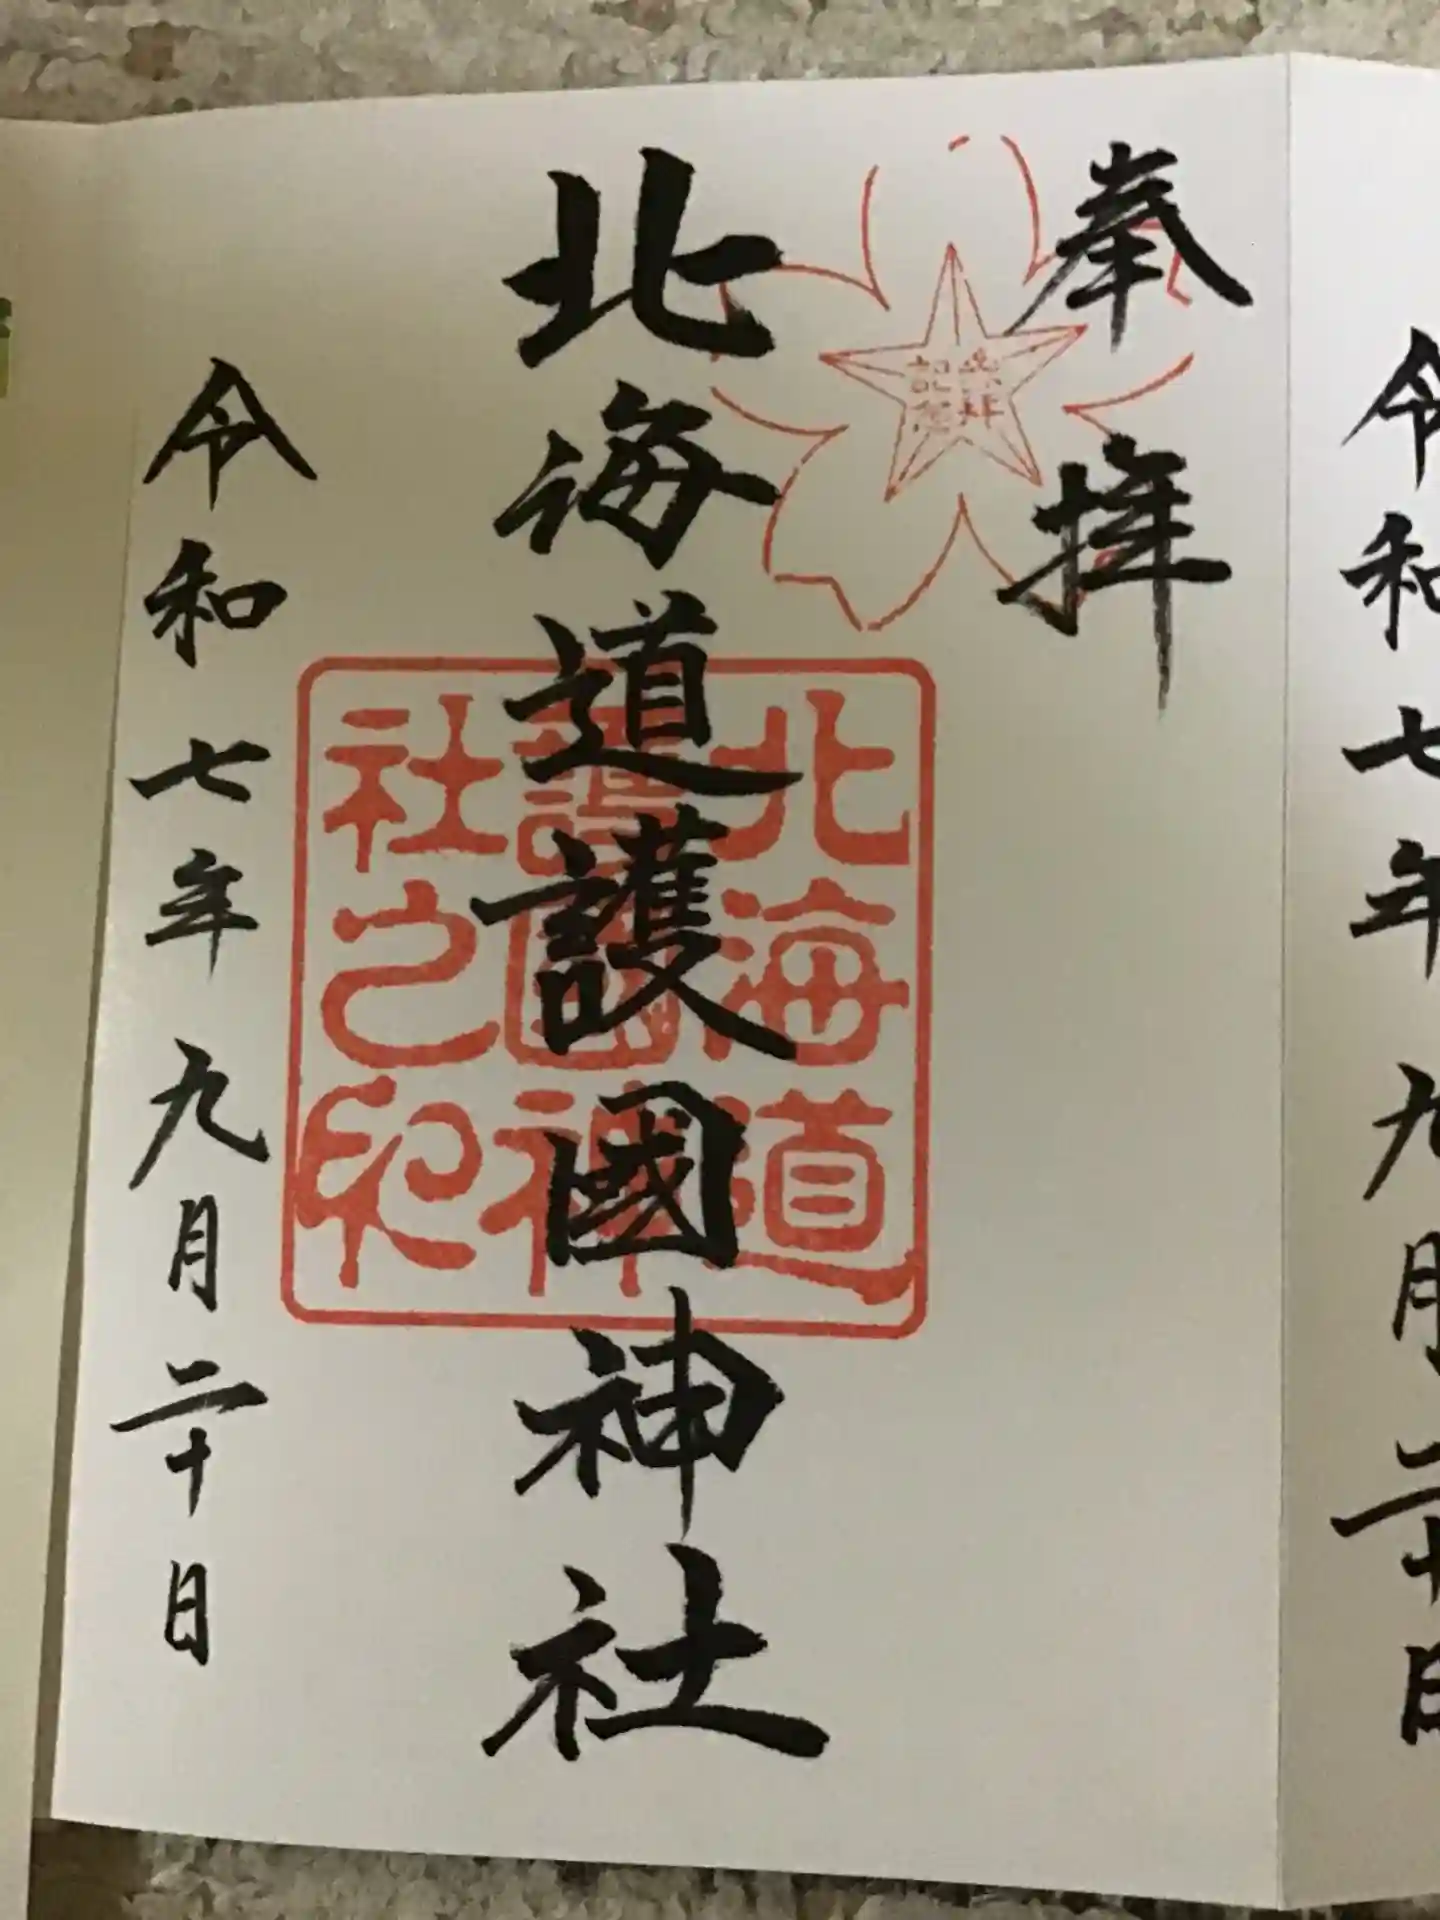 令和七年九月二十日
奉拝
參拜
記念
北海道護國神社
北海道
護國神
社之印
令和七年九月二十日